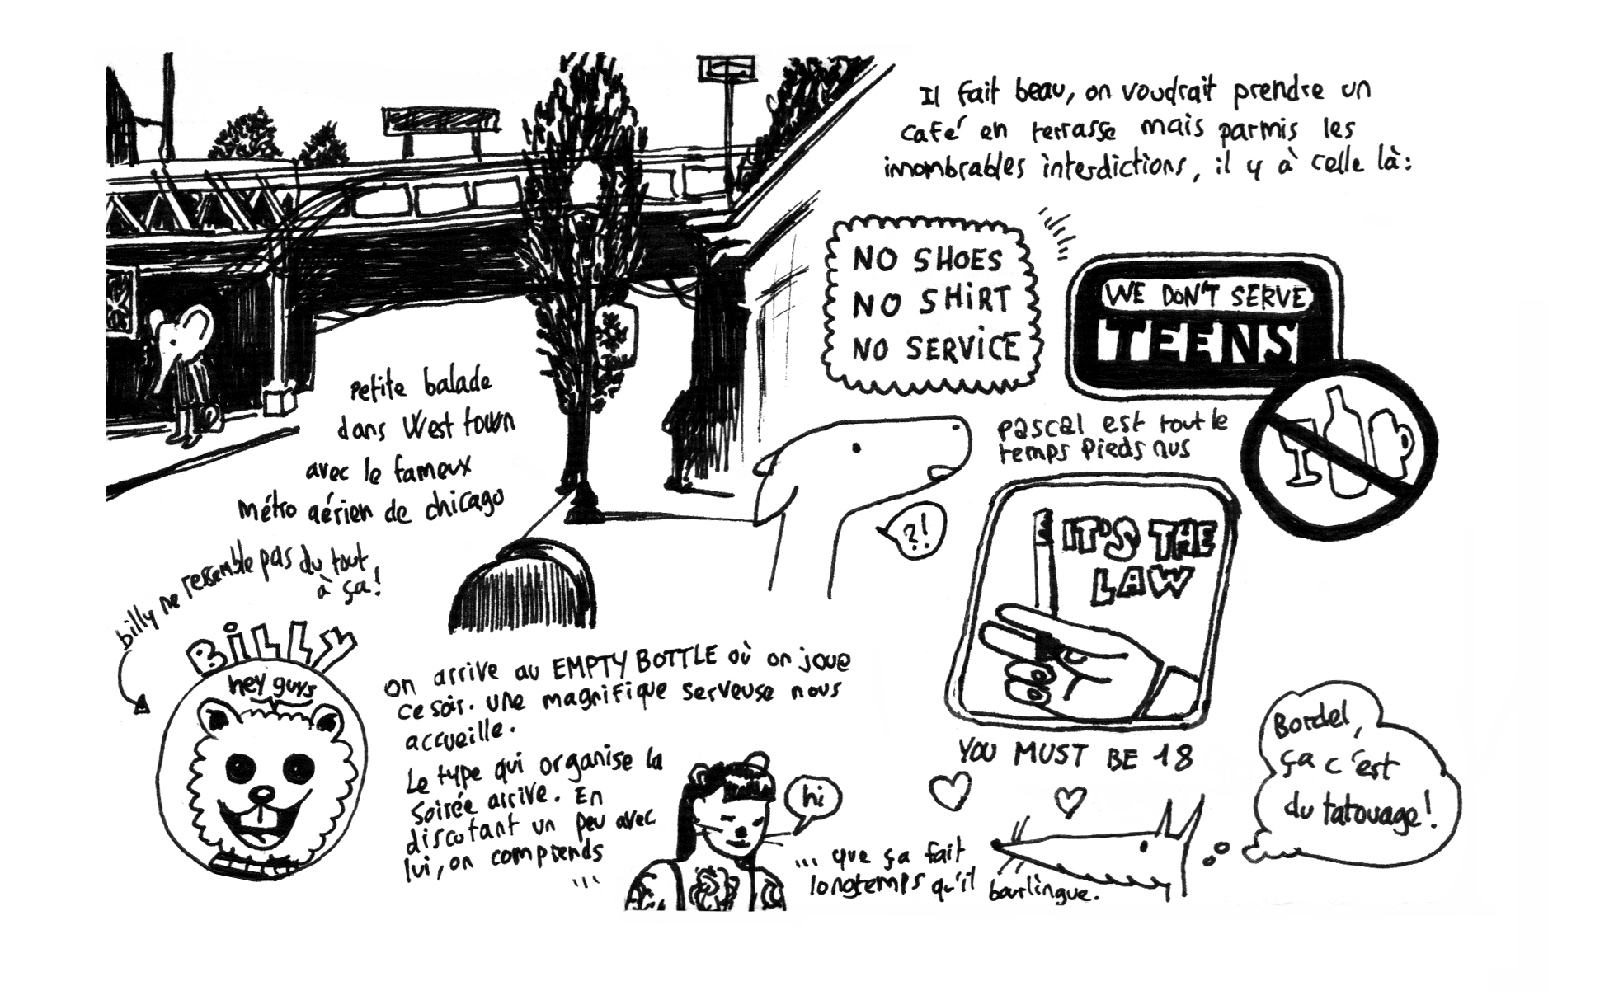 Il fait beau, on voudrait prendre un
café en terrasse mais parmis les
innombrables interdictions, il y à celle là:
NO SHOES
NO SHIRT
NO SERVICE
WE DON'T SERVE
TEENS
Pascal est tout le
temps pieds nus
?!
IT'S THE
LAW
YOU MUST BE 18
Petite balade
dans West town
avec le fameux
métro aérien de chicago
billy ne ressemble pas du tout
à ça!
BILLY
hey guys
on arrive au EMPTY BOTTLE où on joue
ce soir. une magnifique serveuse nous
accueille.
Le type qui organise la
soirée arrive. En
discutant un peu avec
lui, on comprends
...
hi
... que ça fait
longtemps qu'il bourlingue.
Bordel,
ça c'est
du tatouage!